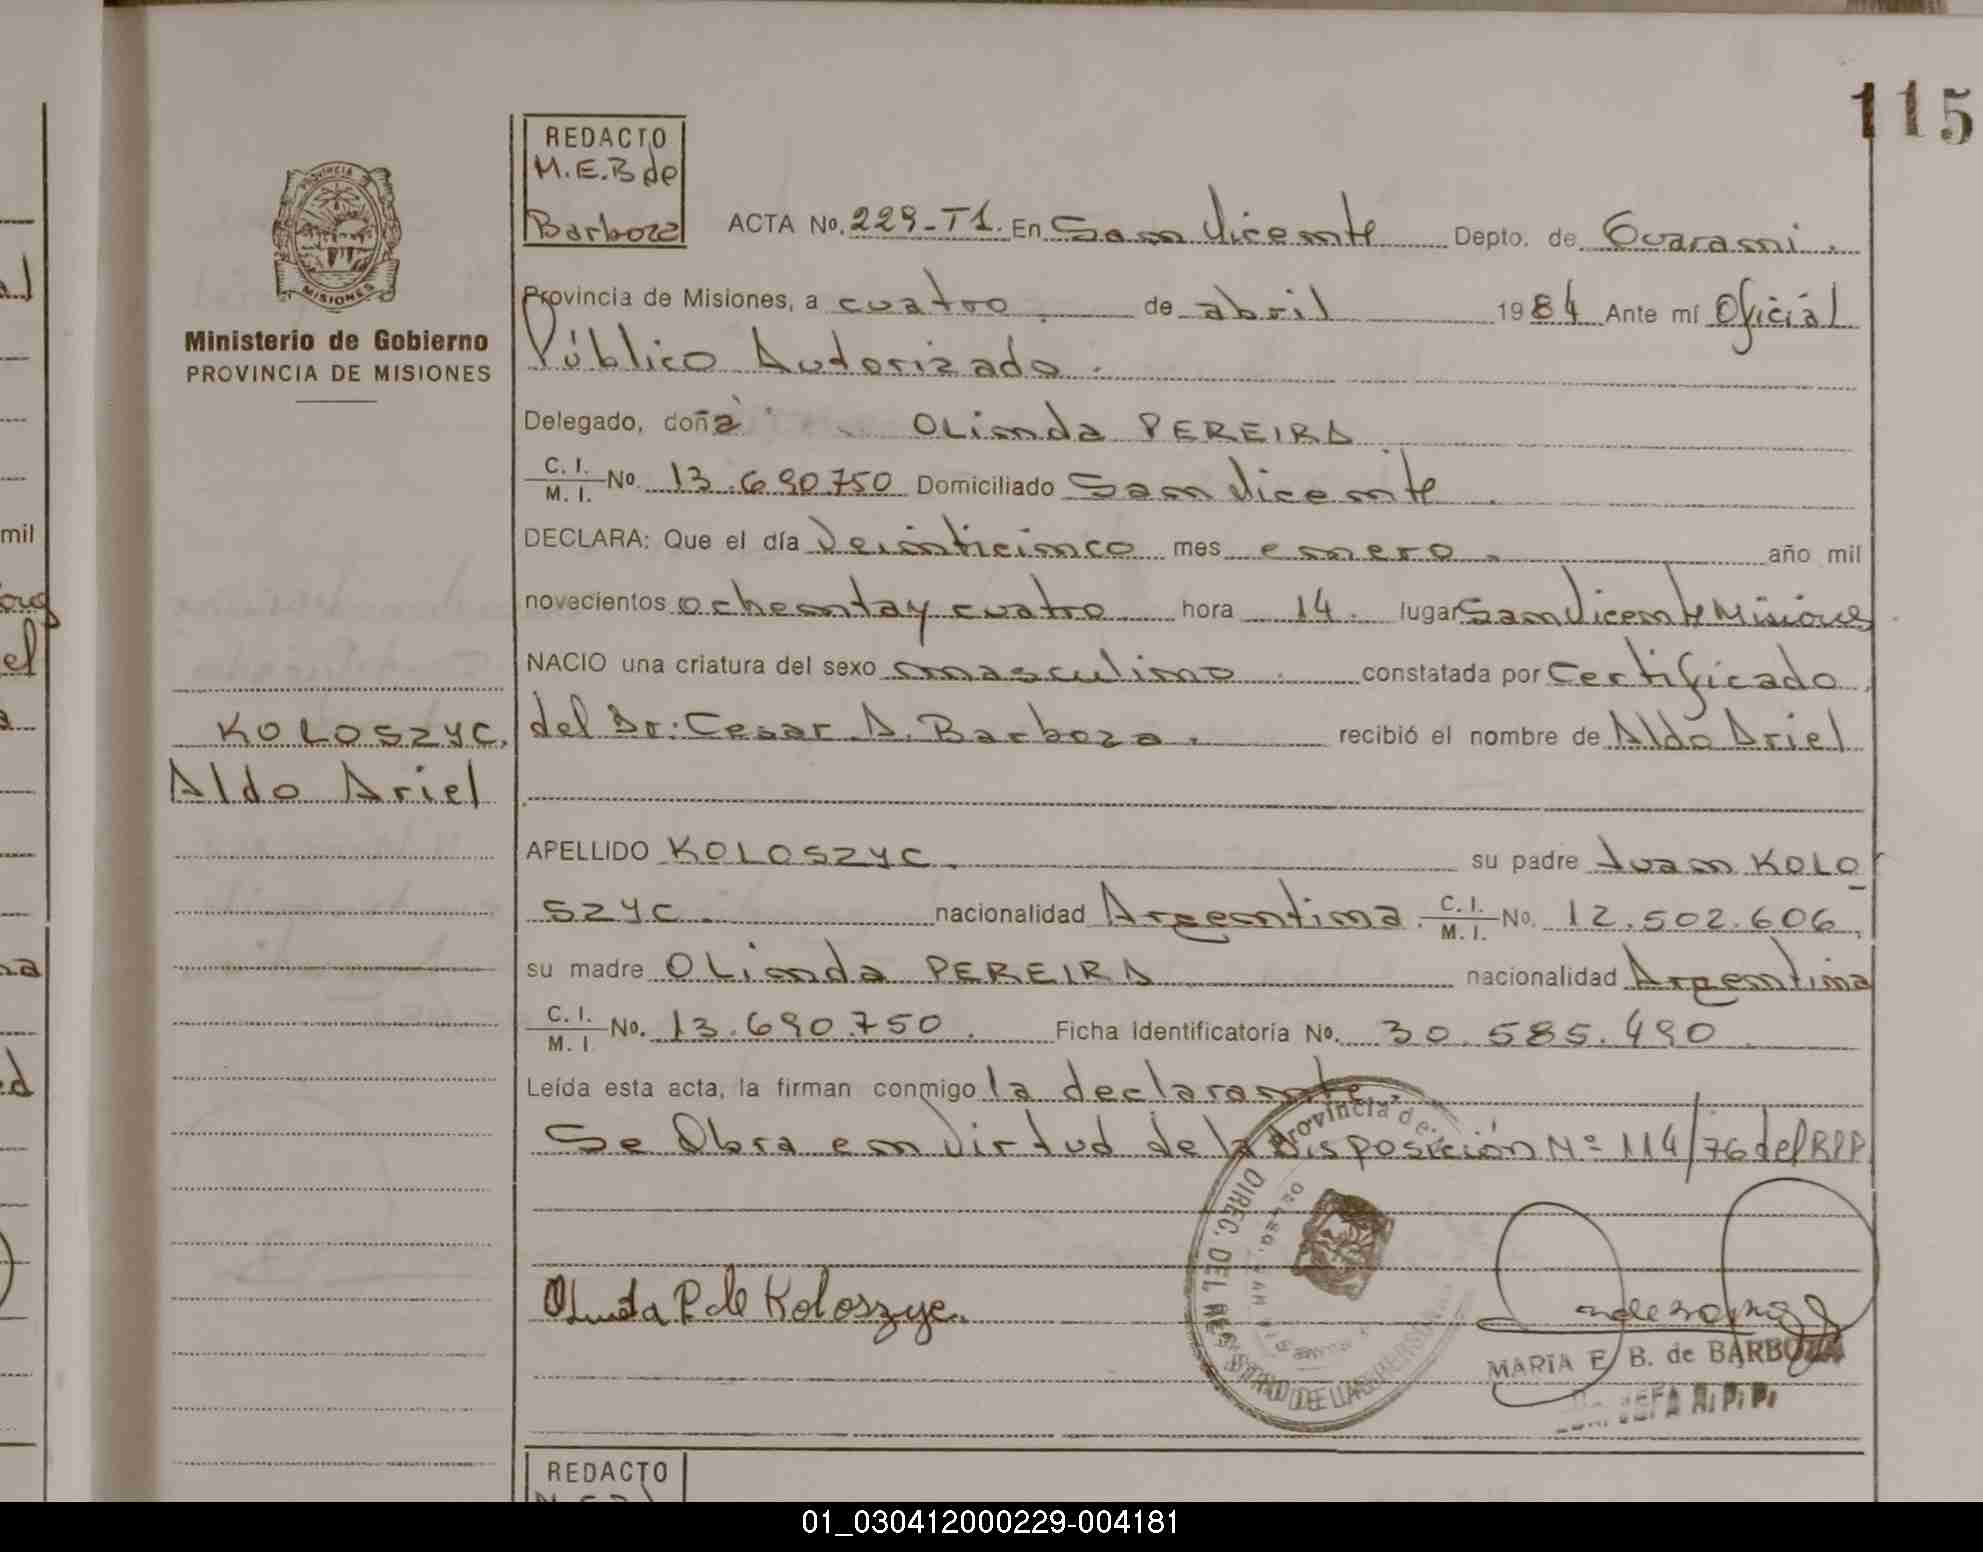 115
PROVINCIA DE
MISIONES
Ministerio de Gobierno
PROVINCIA DE MISIONES
REDACTO
M.E.B de
Barboza
ACTA No. 229-T1. En San Vicente Depto. de Guarani.
Provincia de Misiones, a cuatro de abril 1984 Ante mí Oficial
Público Autorizado.
Delegado, doña OLinda PEREIRA
C. I. / M. I. No 13.690.750 Domiciliado San Vicente
DECLARA: Que el día Veinticinco mes enero. año mil
novecientos ochenta y cuatro hora 14. lugar San Vicente Misiones
NACIO una criatura del sexo masculino constatada por Certificado
del Dr: Cesar A. Barboza. recibió el nombre de Aldo Ariel
KOLOSZYC,
Aldo Ariel
APELLIDO KOLOSZYC. su padre Juan KOLO
SZYC. nacionalidad Argentina. C. I. / M. I. No. 12.502.606,
su madre OLinda PEREIRA nacionalidad Argentina
C. I. / M. I No. 13.690.750. Ficha Identificatoria No. 30.585.490
Leída esta acta, la firman conmigo la declarante.
Se Obra en Virtud de la Disposición Nº 114/76 del RPP
Provincia de
DIREC. DEL
Olinda P. de Koloszyc.
MARIA E. B. de BARBOZA
JEFA R. P. P.
REDACTO
mil
el
01_030412000229-004181